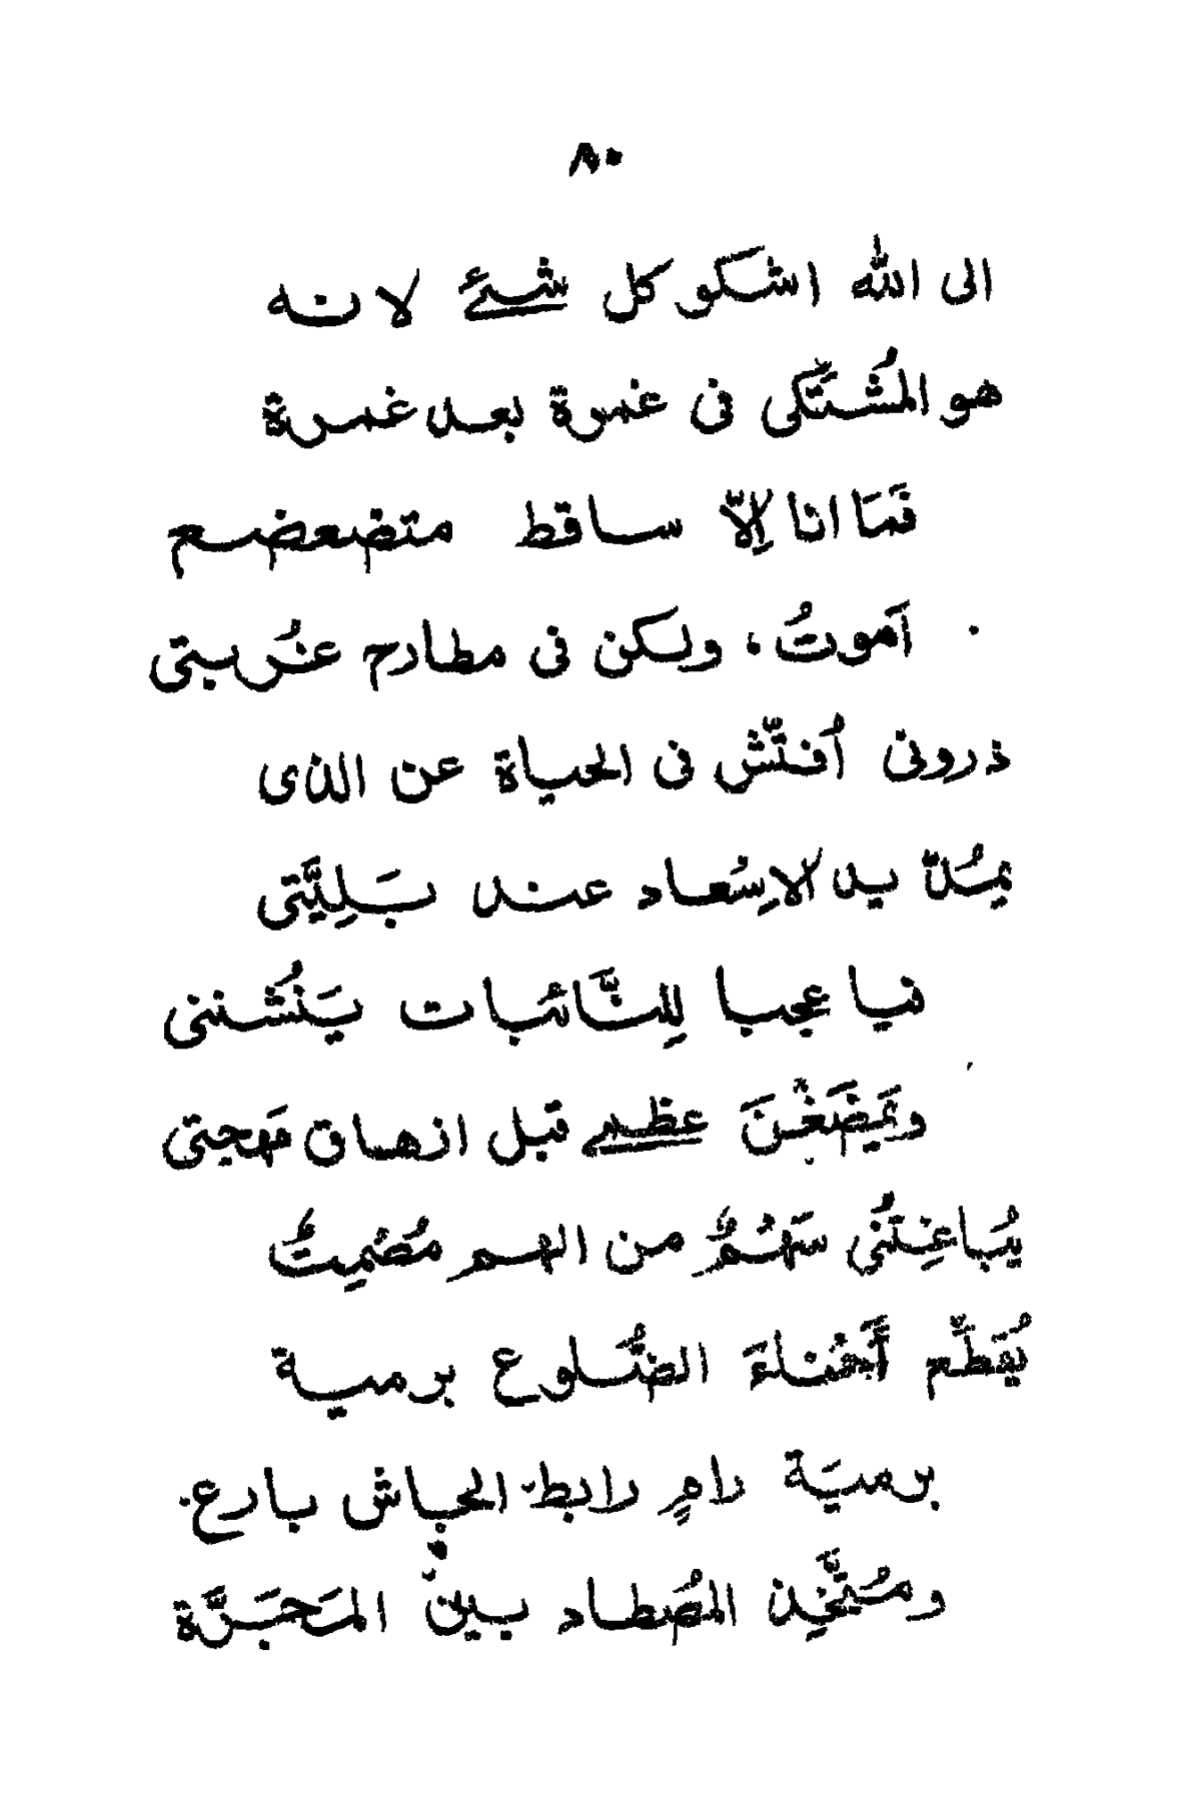 ٨٠
الى الله اشكو كل شيئ لانه
هو المُشتَكى فى غمرة بعد غمرة
فَمَا انا اِلاّ ساقط متضعضع
اَموتُ ، ولكن فى مطارح غُربتى
ذرونى اُفتّش فى الحياة عن الذى
يمُدّ يد الاِسْعاد عند بَلِيَّتى
فيا عجبا لِلنَّائبات يَنُشننى
ويَمضَغْنَ عظمى قبل ازهاق مَهجتى
يُباغِتُنى سَهْمٌ من الهم مُصْمِتٌ
يُقَطِّع أَحْناءَ الضُّلوع برمية
برميَة رامٍ رابط الجاش بارع
ومُتَّخِذ المُصطاد بين المَجَرَّة